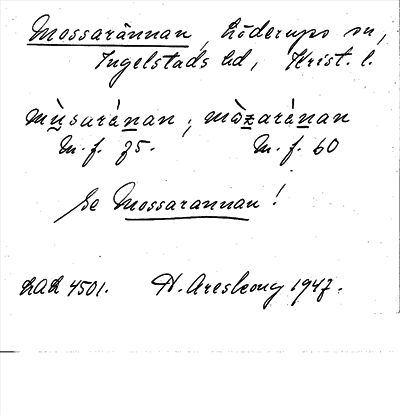 Mossarännan, Löderups sn,
Ingelstads hd, Krist. l.
mùsaránan; màzaránan
M. f. 75. M. f. 60
Se Mossarannan!
LAL 4501. H. Areskoug 1947.